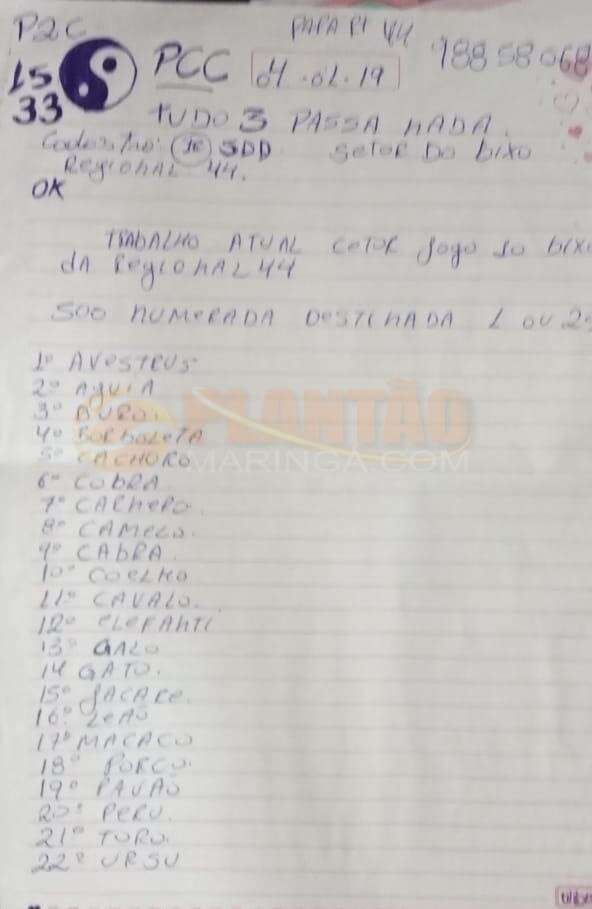 P2C PAPA RT 44 98858068
15 PCC 04.02.19
33 TUDO 3 PASSA NADA.
SDD SETOR DO bixo
RegIONAL 44.
OK
TRABALHO ATUAL CETOR Jogo do bixo
dA RegIONAL 44
500 NUMERADA DESTINADA 1 OU 2
1º AVESTRUS
2º AguIA
3º BURO.
4º BORBOLETA
5º CACHORO
6º CObRA
7º CARNERO.
8º CAMELO.
9º CAbRA.
10º COELHO
11º CAVALO.
12º ELEFANTE
13º GALO
14 GATO.
15º JACARE.
16º LEAO
17º MACACO
18º PORCO
19º PAVAO
20º PeRU.
21º TORO.
22º URSU
PLANTÃO
MARINGA.COM